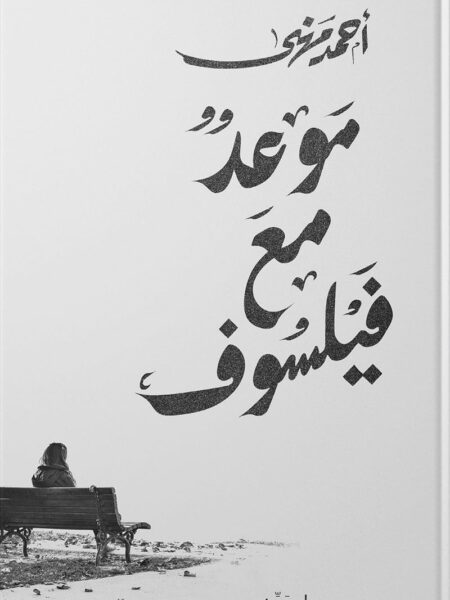 أحمد مهنى
مَوْعدٌ
مَعَ
فَيْلسُوف